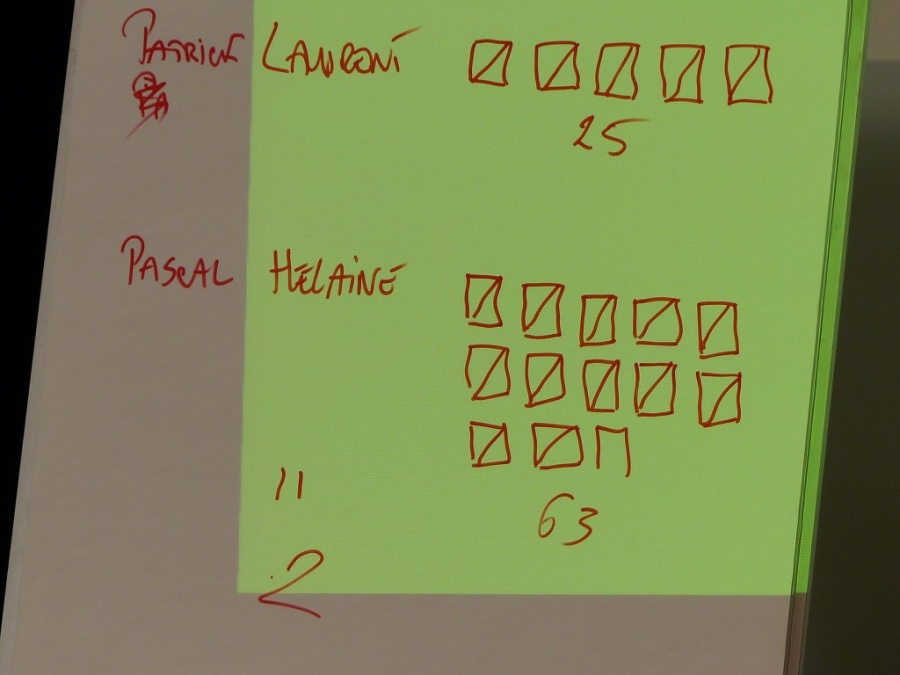 PATRICK LAURENT
25
PASCAL HÉLAINE
63
11
2